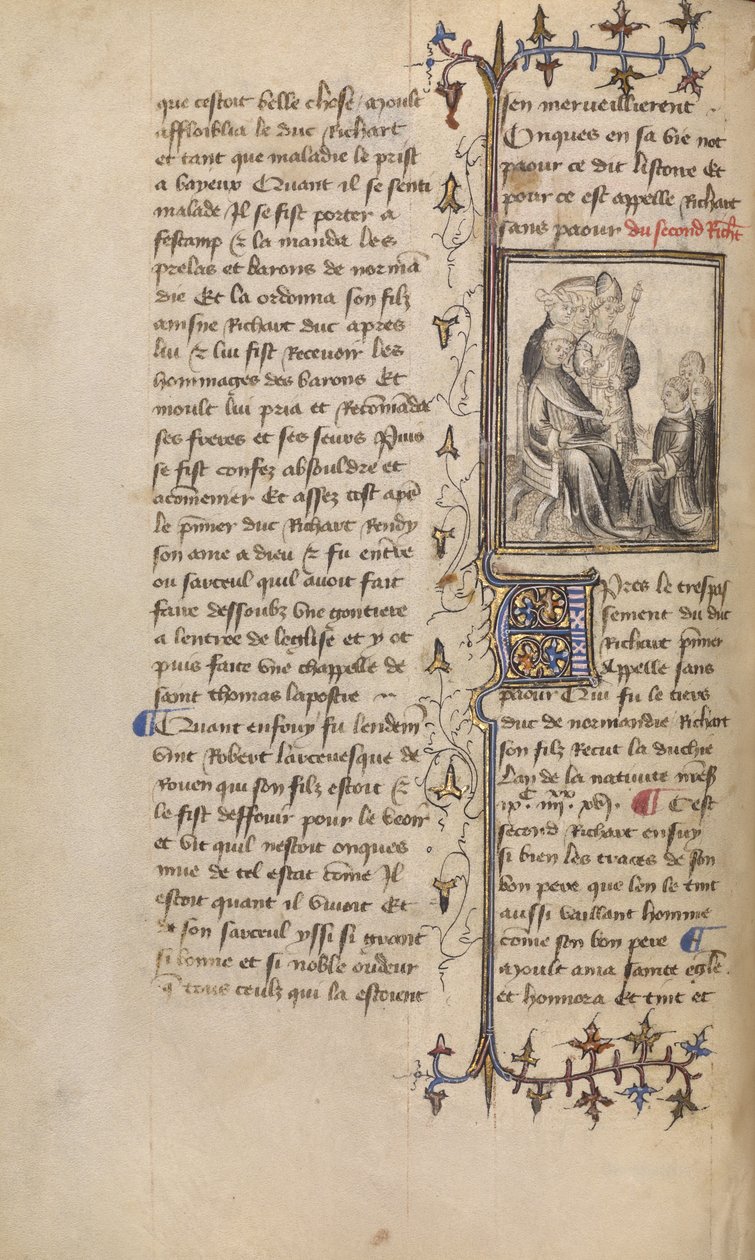 que cestoit belle chose / moult
affloiblia le duc Richart
et tant que maladie le prist
a bayeux Quant il se senti
malade Il se fist porter a
fescamp & la manda les
prelas et barons de normā
die Et la ordonna son filz
ainsne Richart duc apres
lui & lui fist Recevoir les
hommages des barons Et
moult lui pria et Recōmāda
ses freres et ses seurs Puis
se fist confez absouldre et
acōmenier Et assez tost apꝭ
le pm̄ier duc Richart Rendy
son ame a dieu & fu entre
ou sarceul quil avoit fait
faire dessoubz une goutiere
a lentree de leglise et y ot
puis faite une chappelle de
saint thomas lapostre
¶ Quant enfouy fu lendem̄
vint Robert larcevesque de
Rouen qui son filz estoit &
le fist deffouir pour le veoir
et vit quil nestoit onques
mue de tel estat cōme Il
estoit quant il vivoit Et
de son sarceul yssi si grant
si bonne et si noble oudeur
q̄ tous ceulz qui la estoient
sen merveillierent
Onques en sa vie not
paour ce dit listoire Et
pour ce est appelle Richart
sans paour du second Richt̄
Apres le trespas
sement du duc
Richart pm̄ier
Appelle sans
paour Qui fu le tiers
duc de normandie Richart
son filz Recut la duchie
Lan de la nativite nr̄e sr̄
ix.C iiii.xx xvi. ¶ Cest
second Richart ensuy
si bien les traces de son
bon pere que len le tint
aussi vaillant homme
cōme son bon pere ¶
Moult ama sainte egl̄e.
et honnora Et tint et